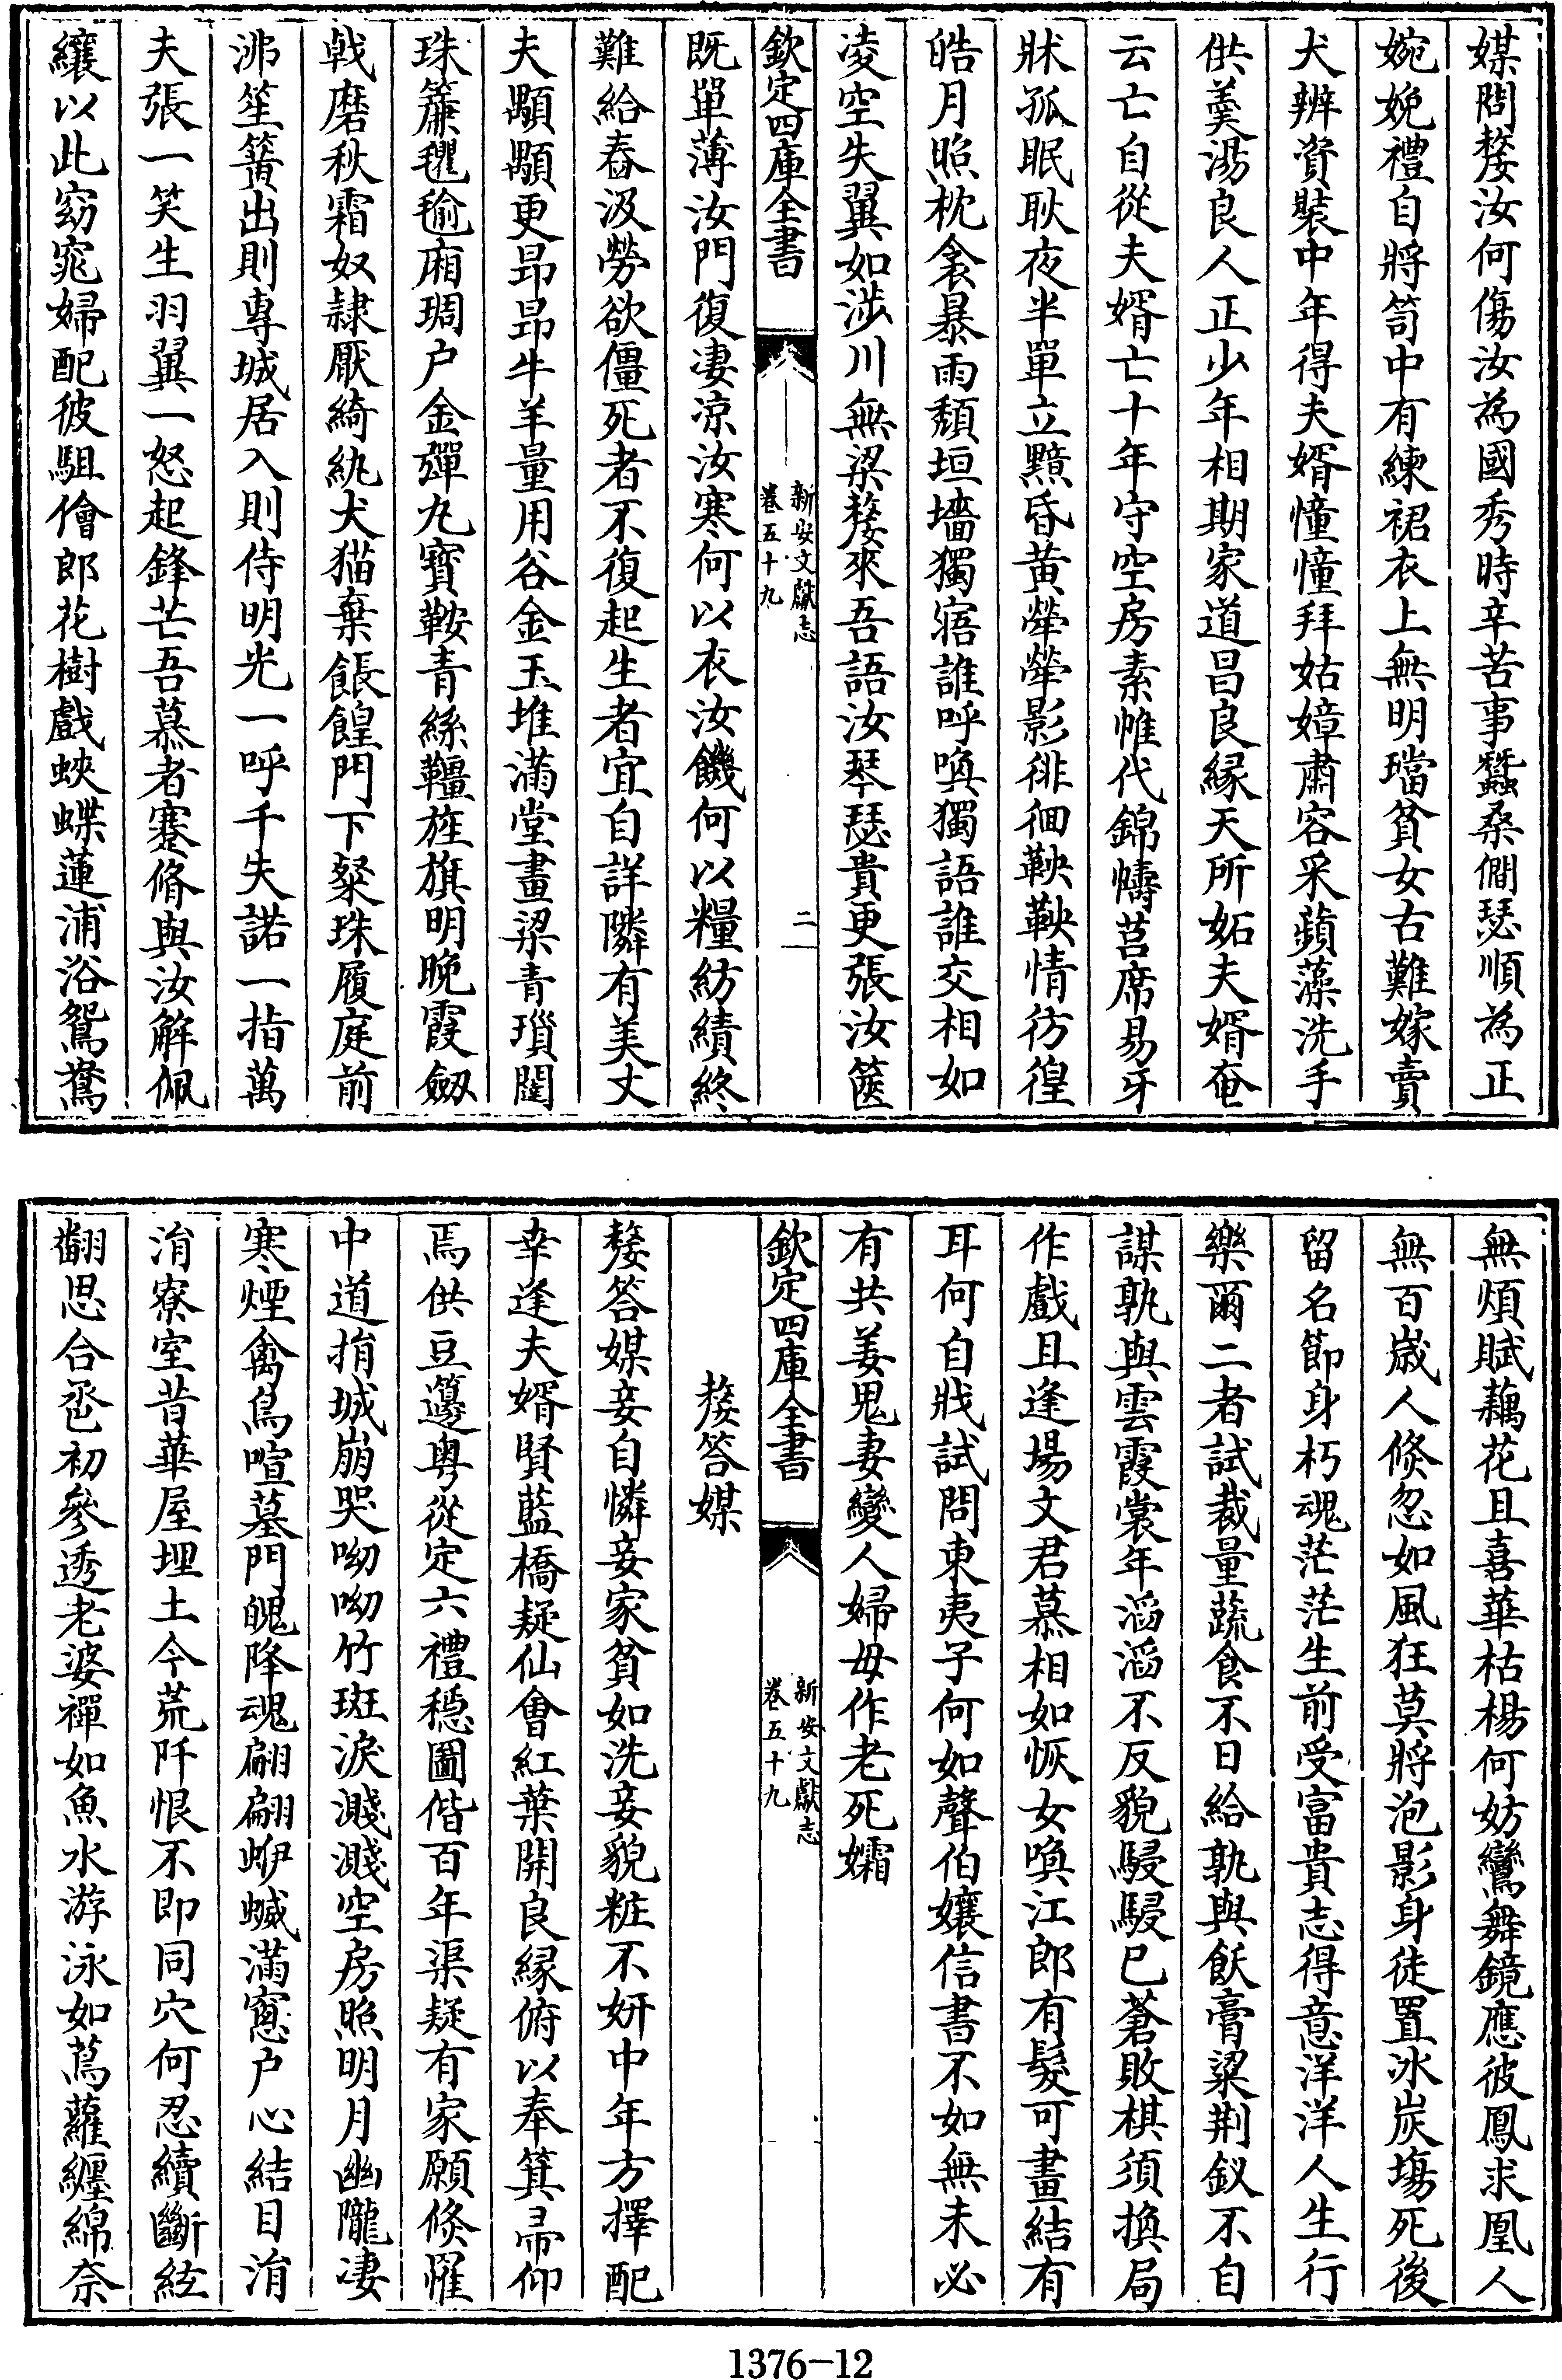 媒問嫠汝何傷汝為國秀時辛苦事蠶桑僩瑟順為正
婉娩禮自將笥中有練裙衣上無明璫貧女古難嫁賣
犬辨資裝中年得夫婿憧憧拜姑嫜肅容采蘋藻洗手
供羹湯良人正少年相期家道昌良縁天所妬夫婿奄
云亡自從夫婿亡十年守空房素帷代錦幬莒席易牙
牀孤眠耿夜半單立黯昏黄犖犖影徘徊鞅鞅情彷徨
皓月照枕衾暴雨頽垣墻獨寤誰呼喚獨語誰交相如
凌空失翼如涉川無梁嫠來吾語汝琴瑟貴更張汝篋
欽定四庫全書
新安文獻志
卷五十九
二
既單薄汝門復凄凉汝寒何以衣汝饑何以糧紡績終
難給舂汲勞欲僵死者不復起生者宜自詳隣有美丈
夫顒顒更昻昻牛羊量用谷金玉堆滿堂畫梁青瑣闥
珠簾氍毹廂琱户金彈丸寳鞍青絲韁旌旗明晩霞劔
戟磨秋霜奴隷厭綺紈犬猫棄餦餭門下粲珠履庭前
沸笙簧出則專城居入則侍明光一呼千夫諾一指萬
夫張一笑生羽翼一怒起鋒芒吾慕者蹇脩與汝解佩
纕以此窈窕婦配彼駔儈郎花樹戲蛺蝶蓮浦浴鴛鴦
無煩賦藕花且喜華枯楊何妨鸞舞鏡應彼鳳求凰人
無百歳人倐忽如風狂莫將泡影身徒置冰炭塲死後
留名節身朽魂茫茫生前受富貴志得意洋洋人生行
樂爾二者試裁量蔬食不日給孰與飫膏粱荆釵不自
謀孰與雲霞裳年滔滔不反貌駸駸已蒼敗棋須換局
作戲且逢塲文君慕相如恢女喚江郎有髮可畫結有
耳何自戕試問東夷子何如聲伯孃信書不如無未必
有共姜鬼妻變人婦毋作老死孀
欽定四庫全書
新安文獻志
卷五十九
嫠答媒
嫠答媒妾自憐妾家貧如洗妾貌粧不妍中年方擇配
幸逢夫婿賢藍橋疑仙會紅葉開良縁俯以奉箕帚仰
焉供豆籩粤從定六禮穩圖偕百年渠疑有家願倐罹
中道捐城崩哭呦呦竹斑淚濺濺空房照明月幽隴凄
寒煙禽鳥喧墓門魄降魂翩翩蛜蝛滿窻户心結目㳙
㳙寮室昔華屋埋土今荒阡恨不即同穴何忍續斷絃
翻思合巹初參透老婆禪如魚水游泳如蔦蘿纒綿奈
1376-12